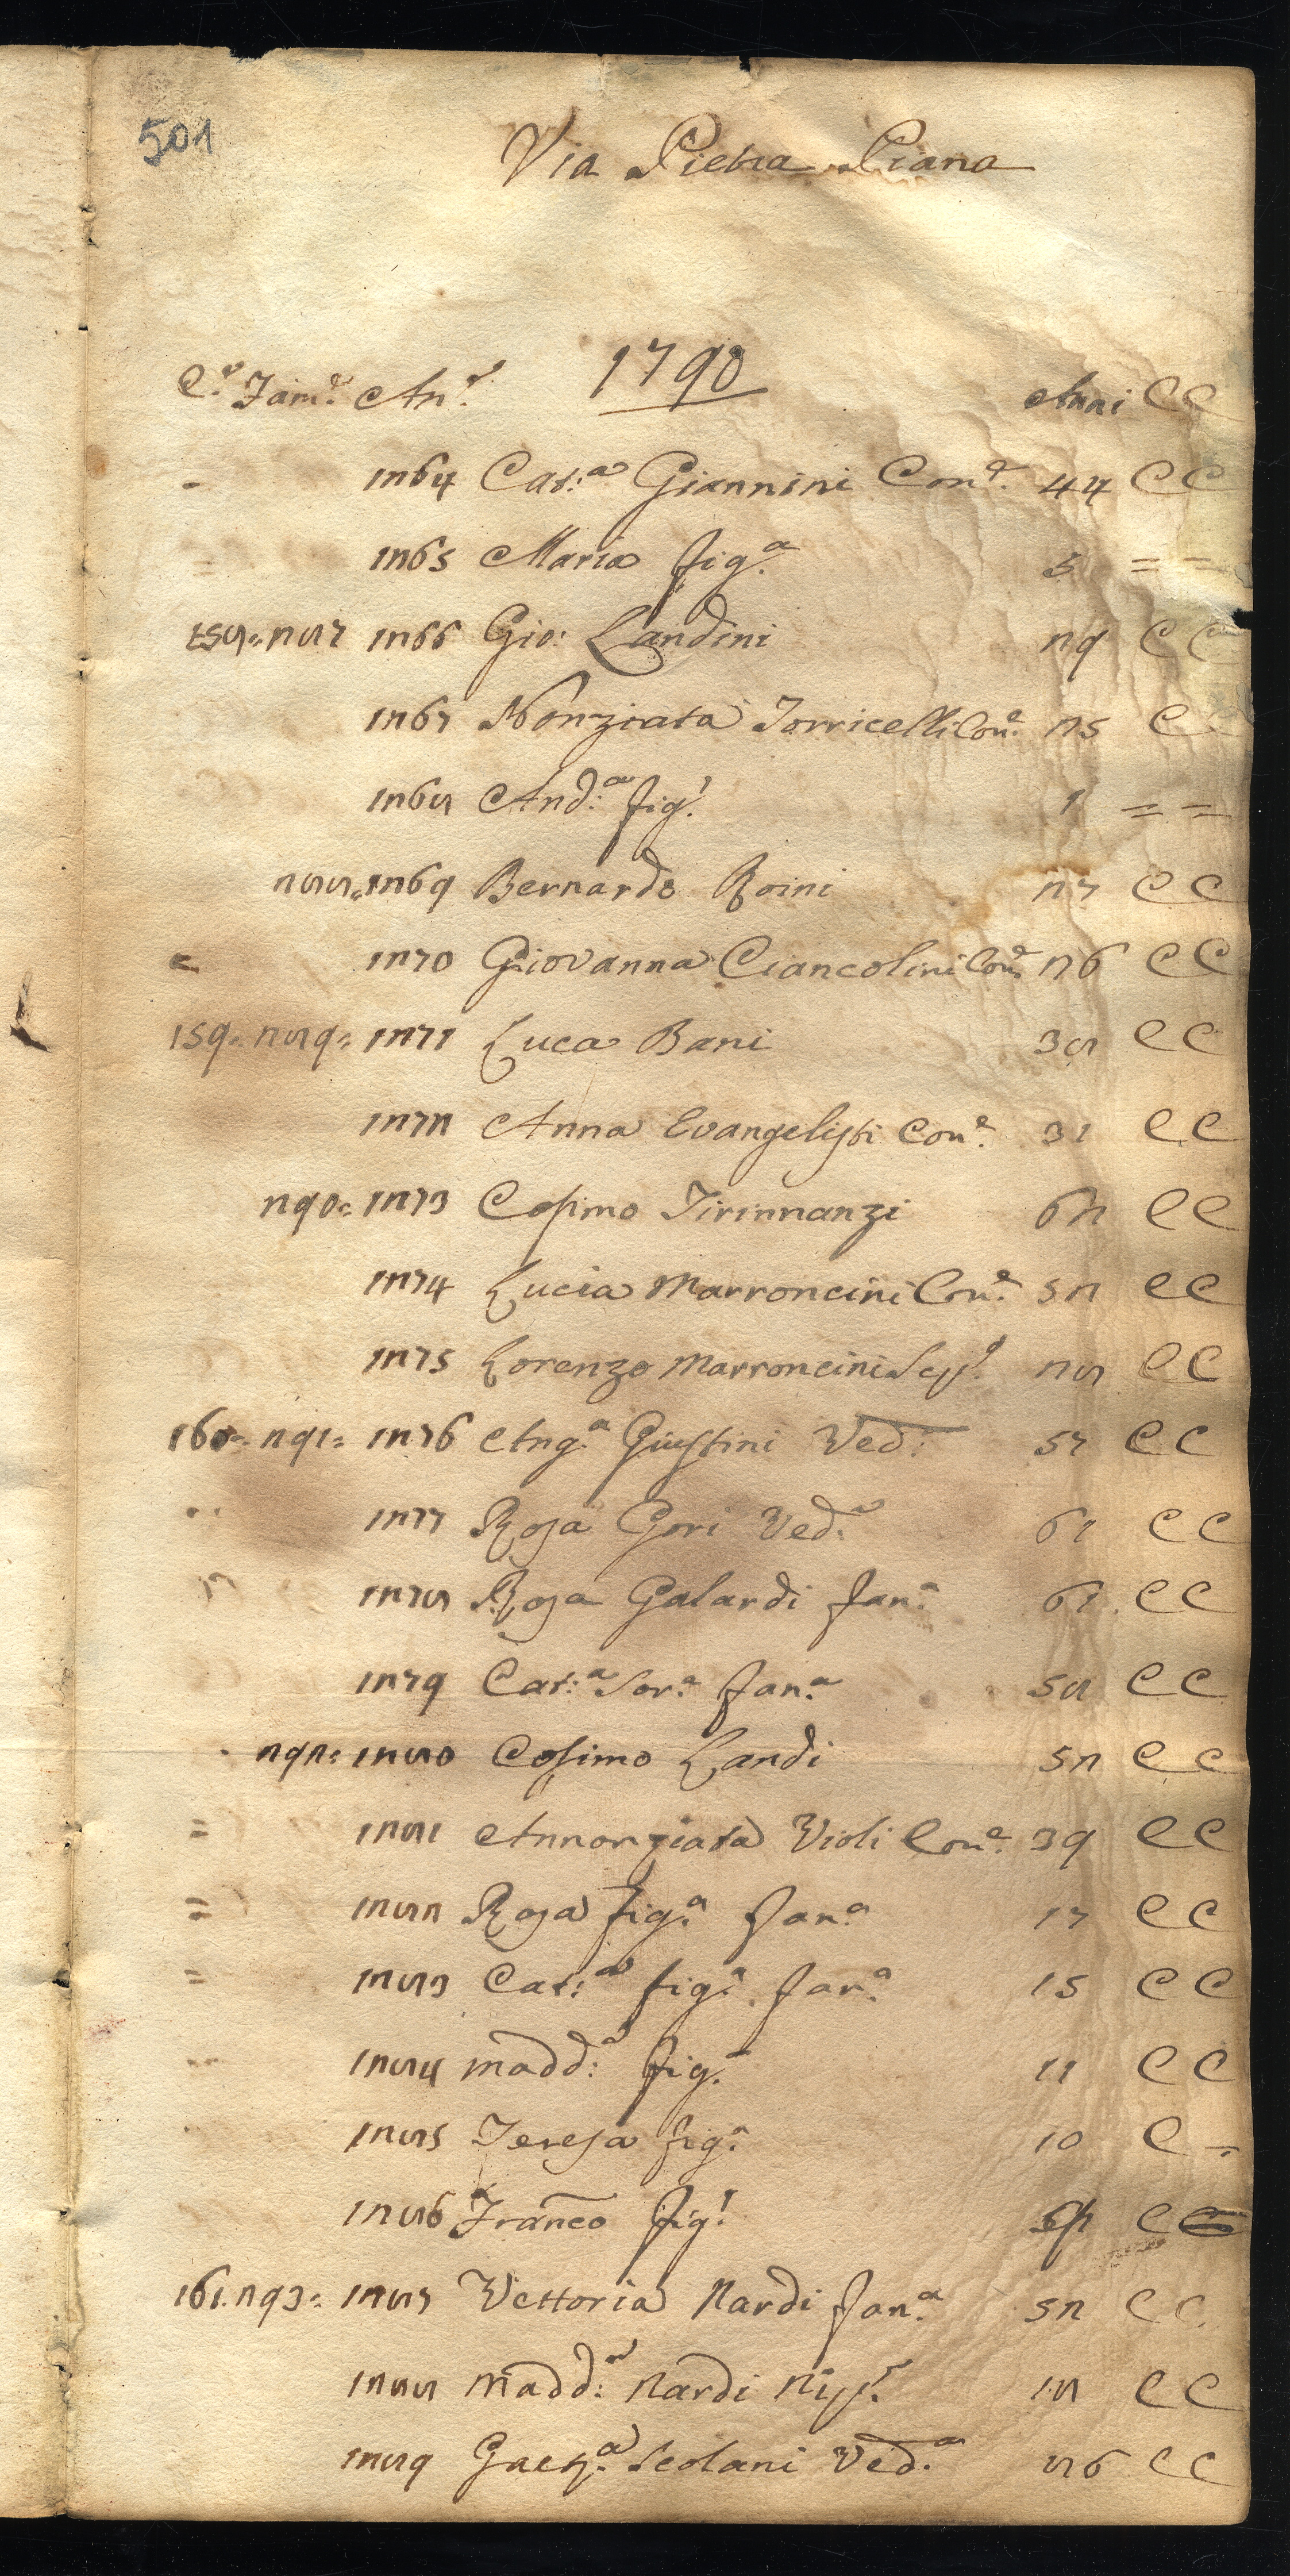 501
Via Pietra Piana
1790
C.e Fam.e An.e Anni CC
1264 Cat:a Giannini Con.e 44 C C
1265 Maria fig.a 5 = =
158= 287 1266 Gio: Landini 29 C C
1267 Nonziata Torricelli Con.e 25 C
1268 And:a fig.o 1 = =
288= 1269 Bernardo Boini 27 C C
1270 Giovanna Ciancolini Con.e 26 C C
159= 289= 1271 Luca Bani 38 C C
1272 Anna Evangelisti Con.e 31 C C
290= 1273 Cosimo Tirinnanzi 62 C C
1274 Lucia Marroncini Con.e 52 C C
1275 Lorenzo Marroncini 28 C C
160= 291= 1276 Ang.a Giustini Ved: 57 C C
1277 Rosa Gori Ved.a 61 C C
1278 Rosa Galardi fan.a 61 C C
1279 Cat:a Sor.a fan.a 58 C C
292= 1280 Cosimo Landi 52 C C
= 1281 Annonziata Violi Con.e 39 C C
= 1282 Rosa fig.a fan.a 17 C C
= 1283 Cat:a fig.a fan.a 15 C C
1284 Madd:a fig.a 11 C C
1285 Teresa fig.a 10 C =
1286 Franco fig.o C
161. 293= 1287 Vettoria Nardi fan.a 52 C C
1288 Madd:a Nardi Nip.e 18 C C
1289 Gaet.a Scolani Ved.a 86 C C